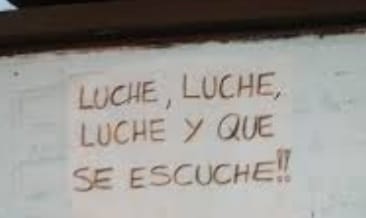 LUCHE, LUCHE,
LUCHE Y QUE
SE ESCUCHE!!